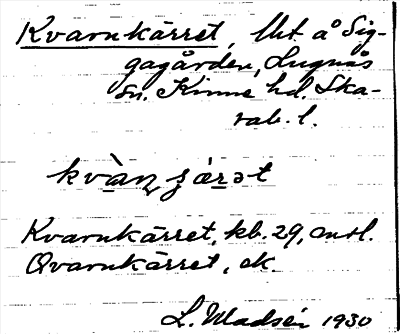 Kvarnkärret, Ut. å Sig-
gagården, Lugnås
sn. Kinne hd. Ska-
rab. l.
kvànȥ ȷárət
Kvarnkärret, kb. 29, anl.
Qvarnkärret, ek.
L. Madsén 1930